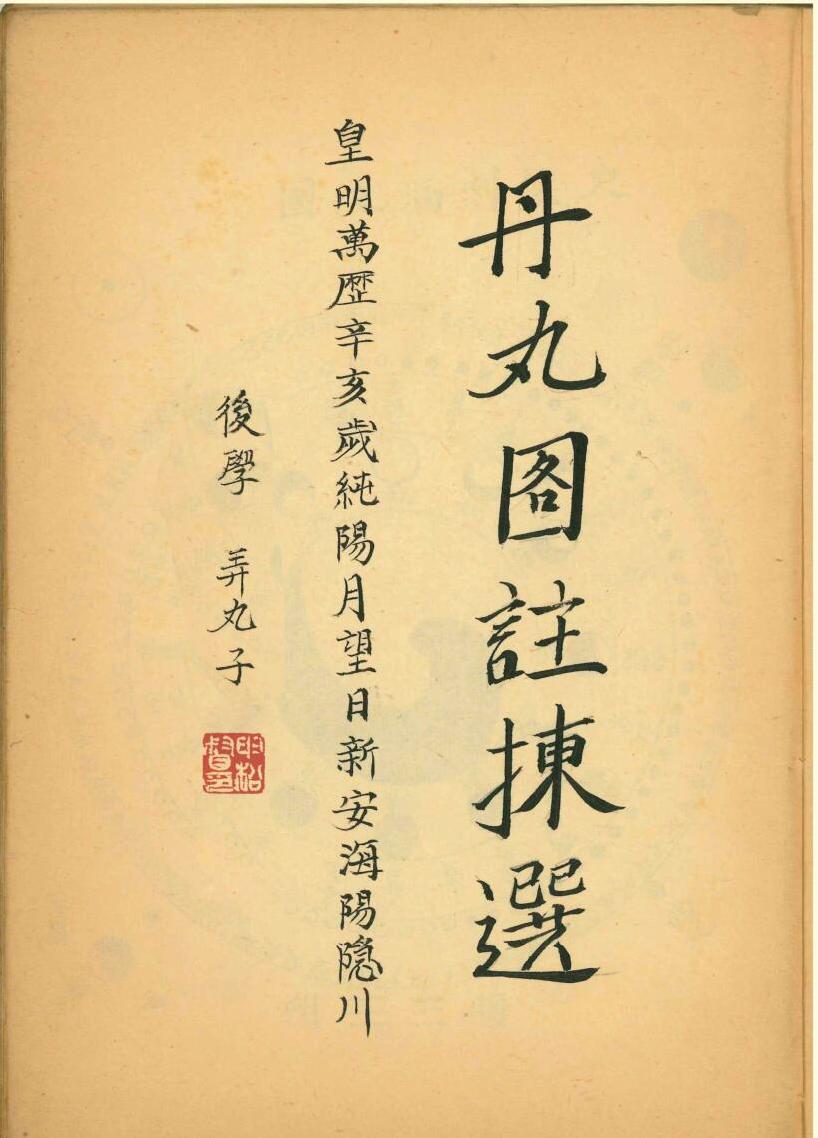 丹丸图註揀選
皇明萬歷辛亥歲純陽月望日新安海陽隠川
後學 弄丸子